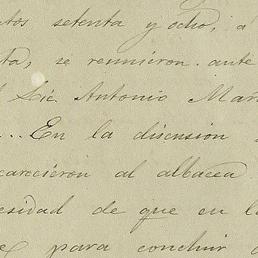 tos setenta y ocho, á
ta, se reunieron ante
l Lic Antonio Mar
... En la discusion
carecieron al albacea
esidad de que en l
e para concluir